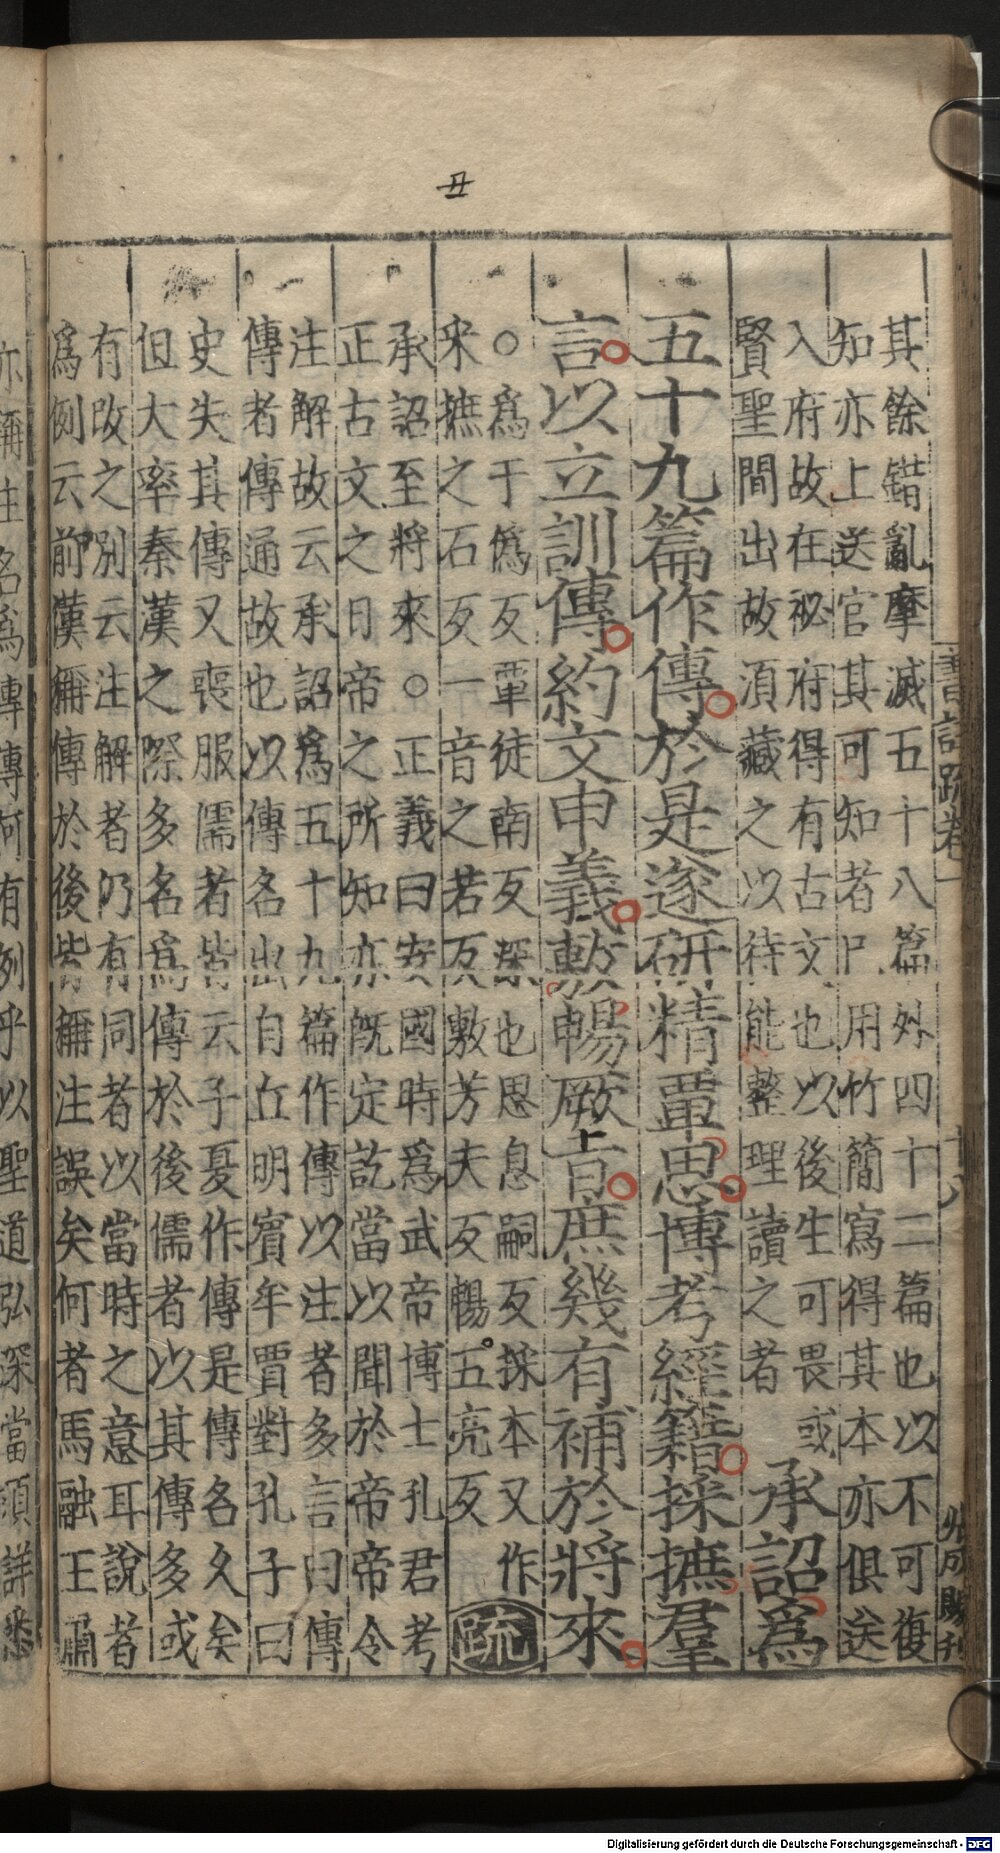 丑
其餘錯亂摩滅五十八篇外四十二篇也以不可復
知亦上送官其可知者已用竹簡寫得其本亦俱送
入府故在祕府得有古文也以後生可畏或
賢聖間出故須藏之以待能整理讀之者
承詔爲
五十九篇作傳於是遂研精覃思博考經籍採摭羣
言以立訓傳約文申義敷暢厥旨庶幾有補於將來
○爲于僞反覃徒南反深也思息嗣反採本又作
采摭之石反一音之若反敷芳夫反暢丑亮反
疏
承詔至將來○正義曰安國時爲武帝博士孔君考
正古文之日帝之所知亦旣定訖當以聞於帝帝令
注解故云承詔爲五十九篇作傳以注者多言曰傳
傳者傳通故也以傳名出自丘明賓牟賈對孔子曰
史失其傳又喪服儒者皆云子夏作傳是傳名久矣
但大率秦漢之際多名爲傳於後儒者以其傳多或
有改之別云注解者仍有同者以當時之意耳說者
爲例云前漢稱傳於後皆稱注誤矣何者馬融王肅
亦稱注名爲傳傳何有例乎以聖道弘深當須詳悉
書註疏卷一
十八
Digitalisierung gefördert durch die Deutsche Forschungsgemeinschaft - DFG